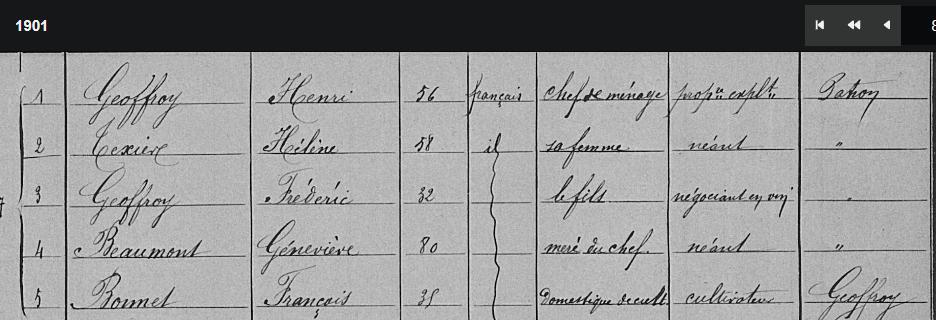 1901
8
1 Geoffroy Henri 56 français chef de ménage prop.re expl.t Patron
2 Texière Hélène 58 id sa femme néant "
3 Geoffroy Frédéric 32 le fils négociant en vin "
7
4 Beaumont Géneviève 80 meré du chef. néant "
5 Bonnet François 35 domestique de cult. cultivateur Geoffroy